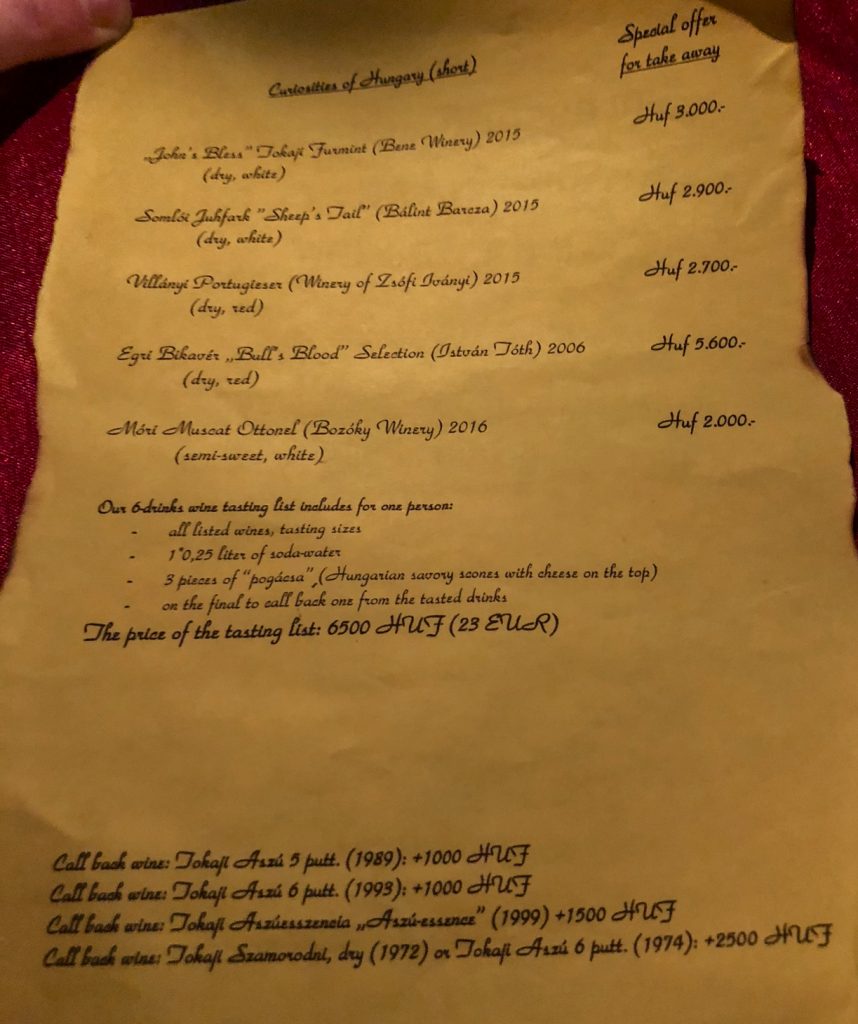 Special offer
for take away
Curiosities of Hungary (short)
Huf 3.000.-
„John's Bless" Tokaji Furmint (Bene Winery) 2015
(dry, white)
Huf 2.900.-
Somlói Juhfark "Sheep's Tail" (Bálint Barcza) 2015
(dry, white)
Huf 2.700.-
Villányi Portugieser (Winery of Zsófi Iványi) 2015
(dry, red)
Egri Bikavér „Bull's Blood" Selection (István Tóth) 2006
Huf 5.600.-
(dry, red)
Móri Muscat Ottonel (Bozóky Winery) 2016
Huf 2.000.-
(semi-sweet, white)
Our 6-drinks wine tasting list includes for one person:
- all listed wines, tasting sizes
- 1*0,25 liter of soda-water
- 3 pieces of "pogácsa",(Hungarian savory scones with cheese on the top)
- on the final to call back one from the tasted drinks
The price of the tasting list: 6500 HUF (23 EUR)
Call back wine: Tokaji Aszú 5 putt. (1989): +1000 HUF
Call back wine: Tokaji Aszú 6 putt. (1993): +1000 HUF
Call back wine: Tokaji Aszúesszencia „Aszú-essence" (1999) +1500 HUF
Call back wine: Tokaji Szamorodni, dry (1972) or Tokaji Aszú 6 putt. (1974): +2500 HUF